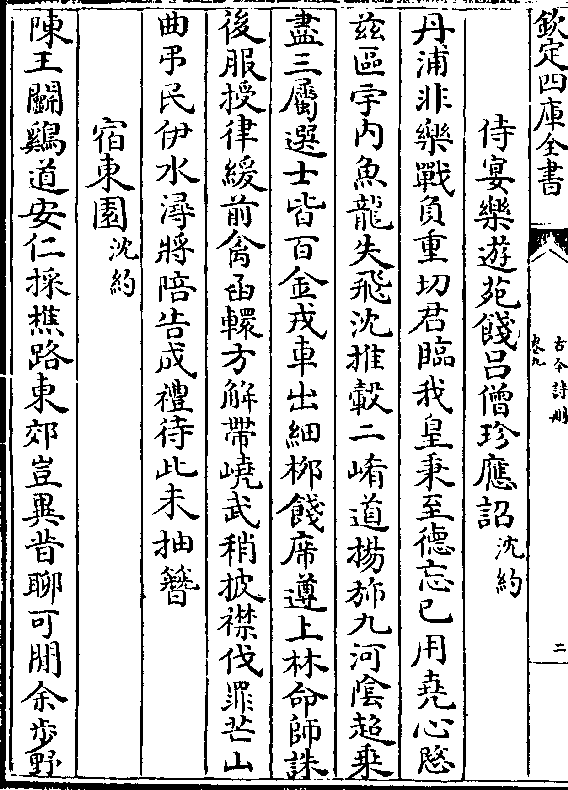 欽定四庫全書
古今詩刪
卷九
二
侍宴樂遊苑餞呂僧珍應詔沈約
丹浦非樂戰負重切君臨我皇秉至德忘已用堯心愍
兹區宇内魚龍失飛沈推轂二崤道揚斾九河隂超乗
盡三屬選士皆百金戎車出細栁餞席遵上林命師誅
後服授律緩前禽函轘方解帶嶢武稍披襟伐罪芒山
曲弔民伊水潯將陪告成禮待此未抽簪
宿東園沈約
陳王鬬鷄道安仁採樵路東郊豈異昔聊可閒余步野